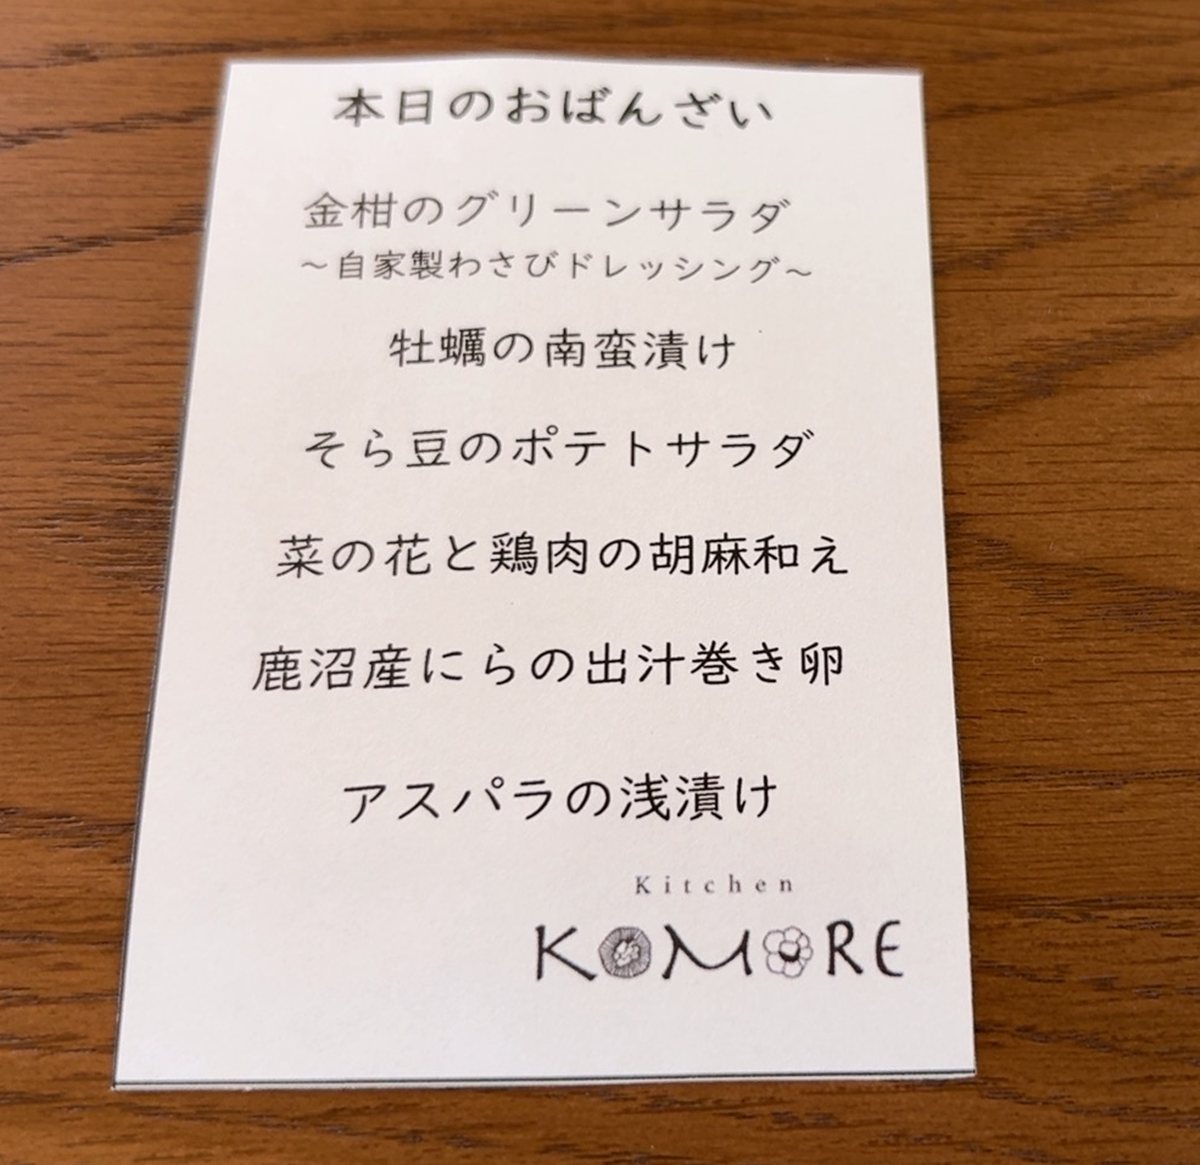 本日のおばんざい
金柑のグリーンサラダ
～自家製わさびドレッシング～
牡蠣の南蛮漬け
そら豆のポテトサラダ
菜の花と鶏肉の胡麻和え
鹿沼産にらの出汁巻き卵
アスパラの浅漬け
Kitchen
KOMORE